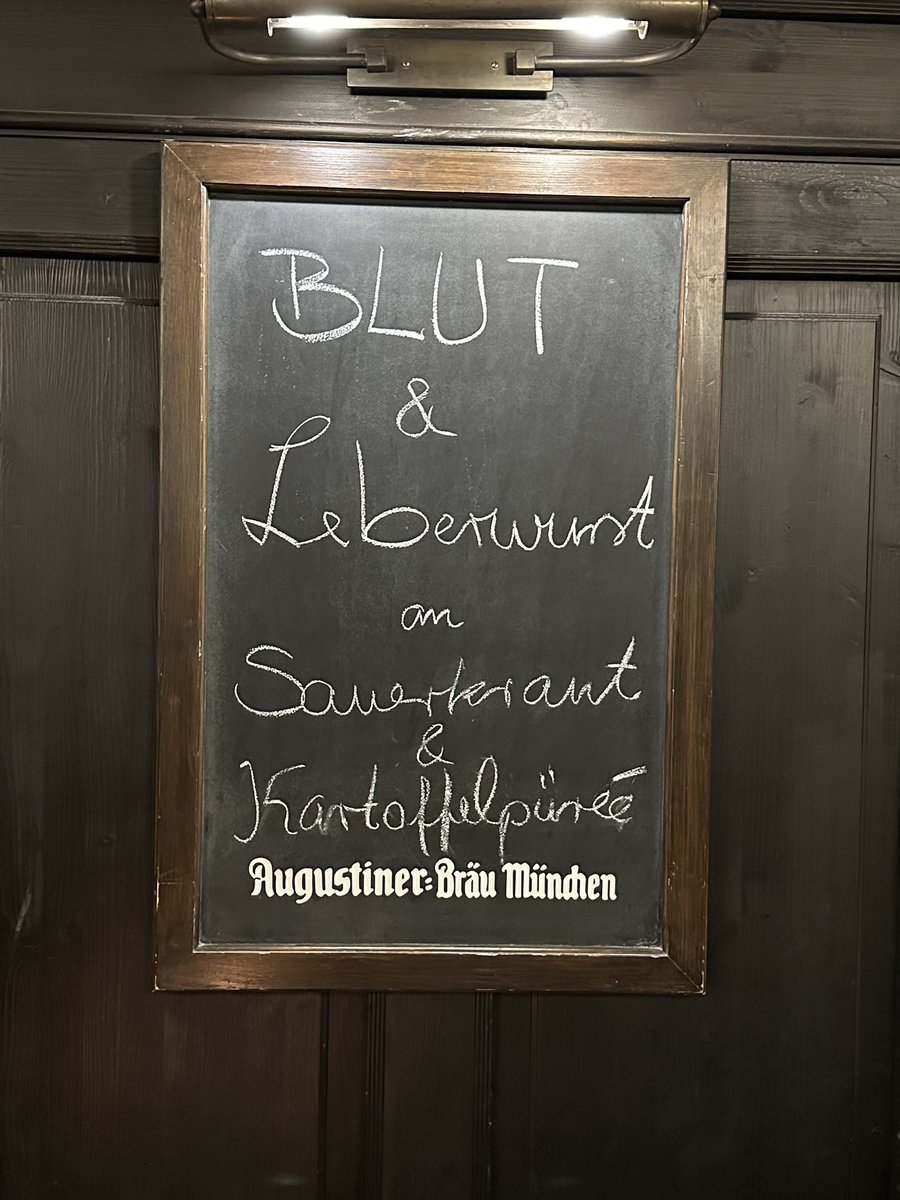 BLUT
&
Leberwurst
an
Sauerkraut
&
Kartoffelpüreé
Augustiner-Bräu München